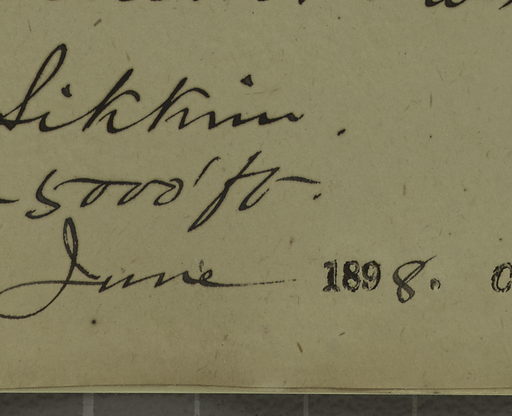 Sikkim.
-5000' ft.
June 1898.